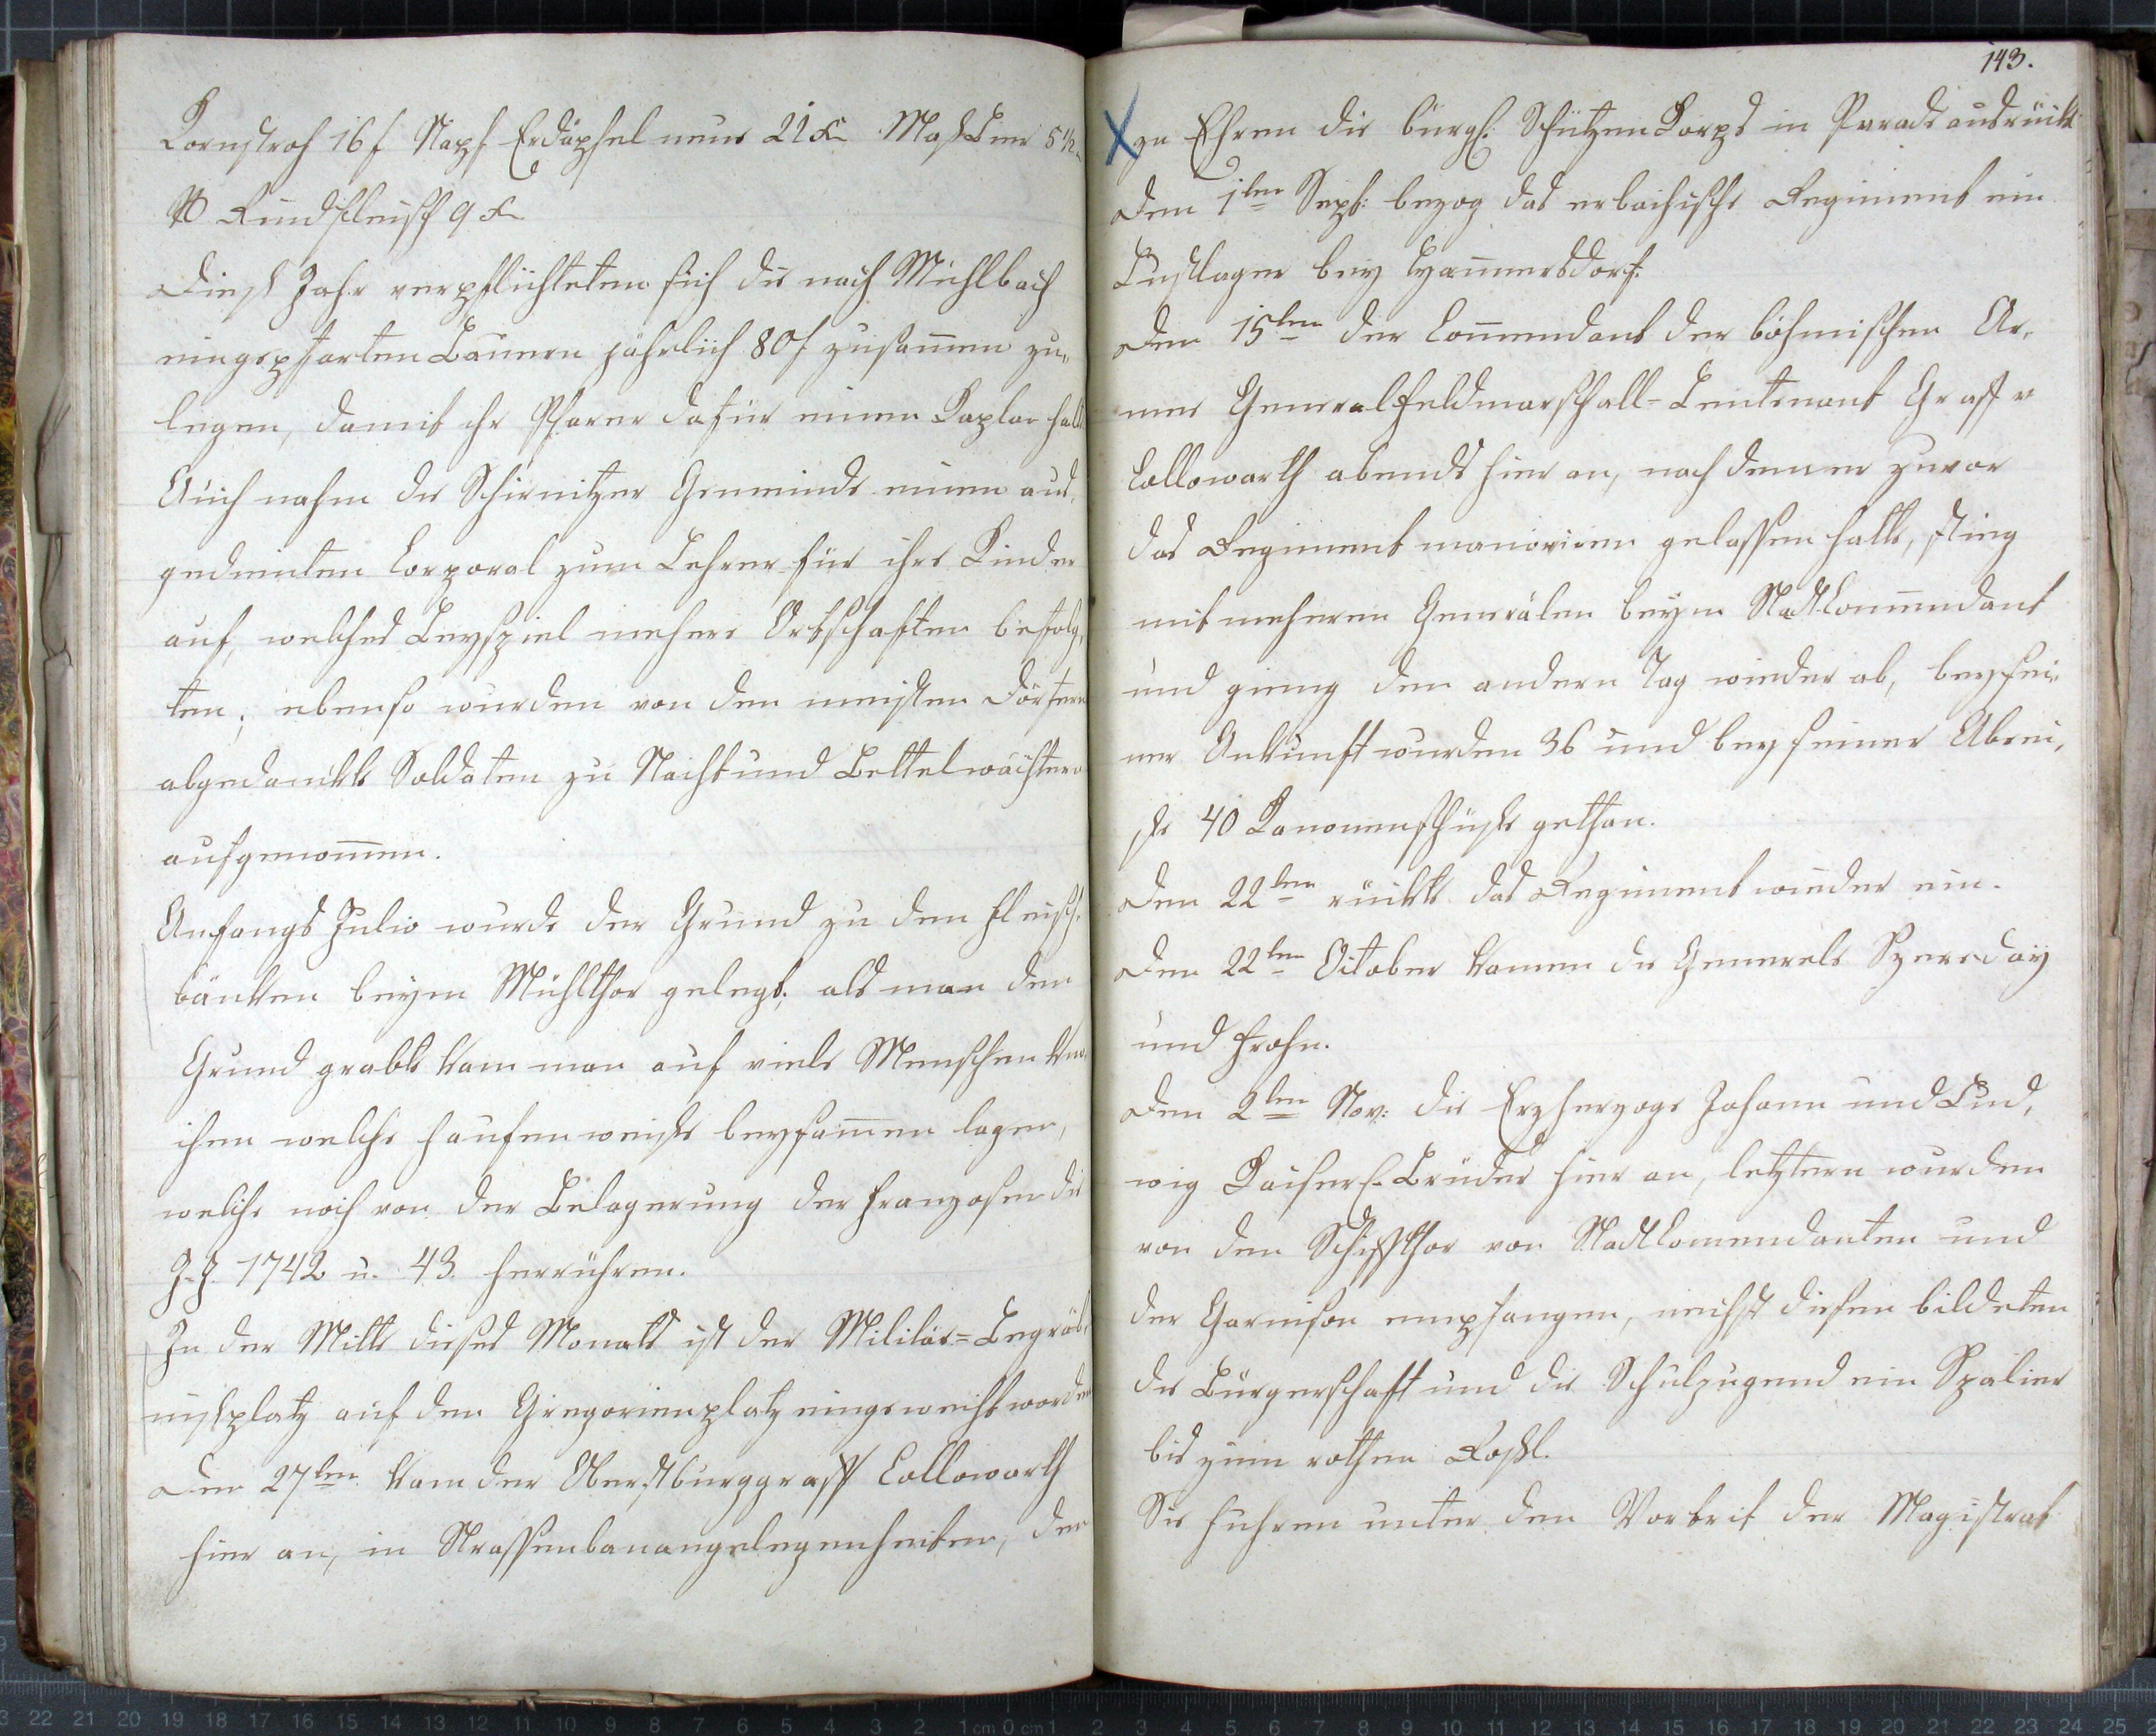 Kornstroh 16 f Napf Erdäpfel neue 21 x Maß Bier 5 1/2
℔ Rindfleisch 9 x
Dieß Jahr verpflichteten sich die nach Mühlbach
eingepfarten Bauern jährlich 80 f zusam̅en zu„
legen, damit ihr Pfarer dafür einen Kaplan halte
Auch nahm die Schirnitzer Gemeinde einen aus„
gedienten Corporal zum Lehrer für ihre Kinder
auf, welches Beyspiel mehere Ortschaften befolg„
ten; ebenso wurden von den meisten Dörfern
abgedankte Soldaten zu Nacht und Bettelwächtern
aufgenom̅en.
Anfangs Julio wurde der Grund zu den Fleisch„
bänken beym Mühlthor gelegt; als man den
Grund grabte kam man auf viele Menschen Kno„
chen welche haufenweise beysam̅en lagen,
welche noch von der Belagerung der Franzosen die
J. J. 1742 u. 43. herrühren.
In der Mitte dieses Monats ist der Militär=Begräb„
nißplatz auf den Gregorienplatz eingeweiht worden
Den 27ten kam der Oberstburggraff Collowarth
hier an, in Strassenbauangelegenheiten, dem
143.
zu Ehren die bürgl. Schützen Korps in Parade ausrückte
Den 1ten Sept: bezog das erbachische Regiment ein
Lustlager bey
Den 15ten der Com̅endant der böhmischen Ar„
mee General Feldmarschall=Leutenant Graff v
Collowarth abends hier an, nach dem er zuvor
das Regiment manöviren gelassen hatte, stieg
mit meheren Generälen beym Stadtkom̅endant
und gieng den andern Tag wieder ab, bey sei„
ner Ankunft wurden 36 und bey seiner Abrei„
se 40 Kanonenschüsse gethan.
Den 22ten rückte das Regiment wieder ein.
Den 22ten October kamen die Generale
und Frohn.
Den 2ten Nov: die Erzherzoge Johann und Lud„
wig Kaiserl. Brüder hier an, letztern wurden
von dem Schiffthor von Stadtkomendanten und
der Garnison empfangen, nächst diesen bildeten
die Bürgerschaft und die Schuljugend ein Spalier
bis zum rothen Roßl.
Sie fuhren unter den Vortrit der Magistrat